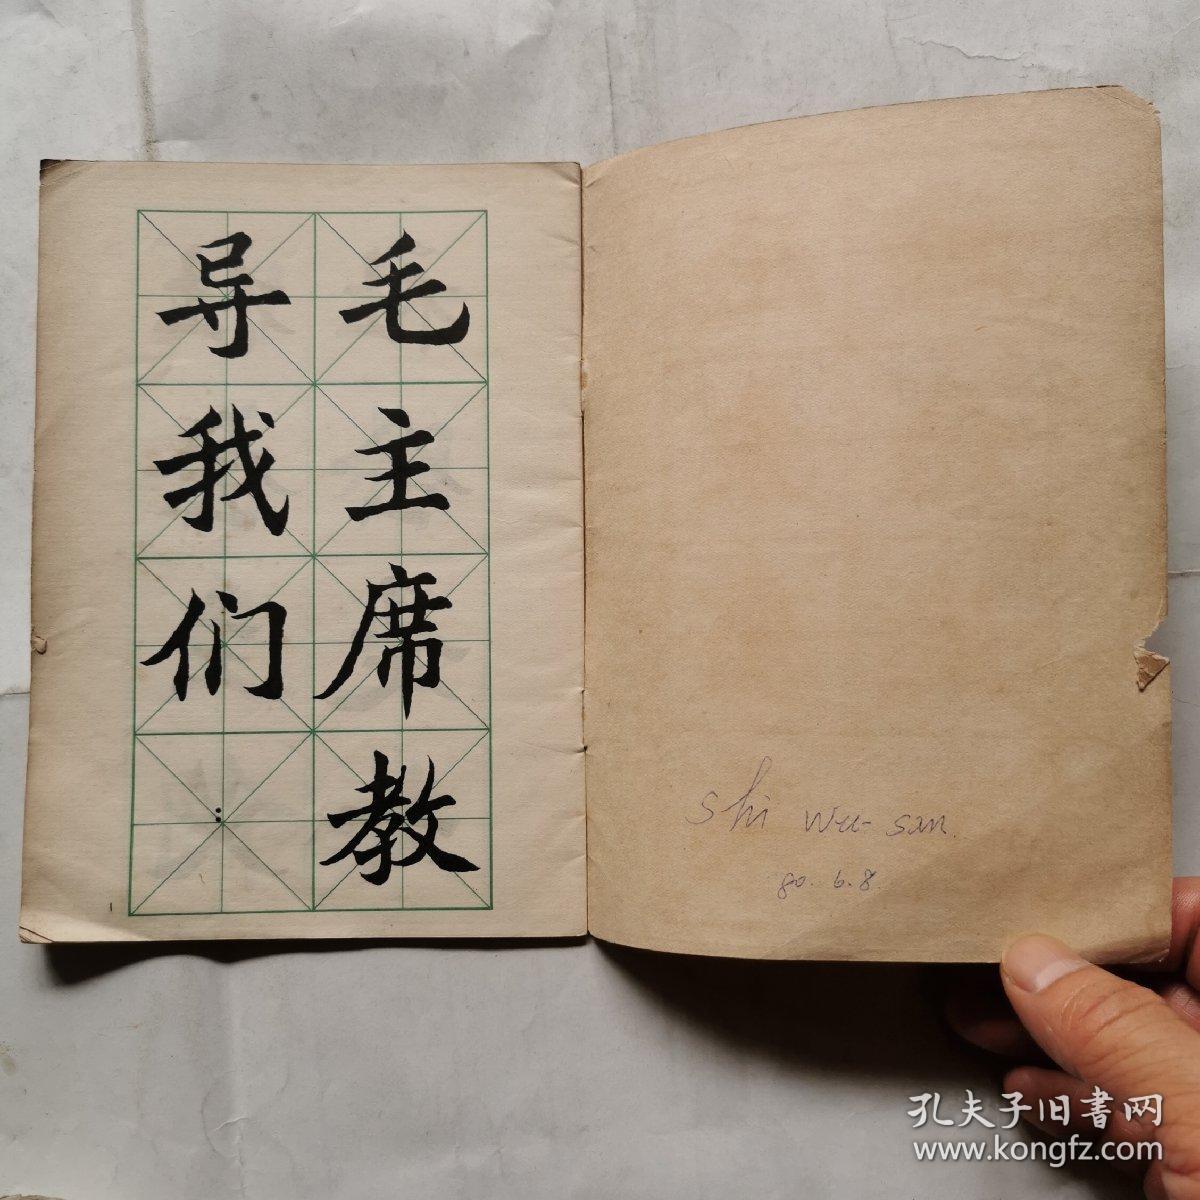 毛主席教
导我们：
1
shi wu-san.
80. 6. 8.
孔夫子旧书网
www.kongfz.com